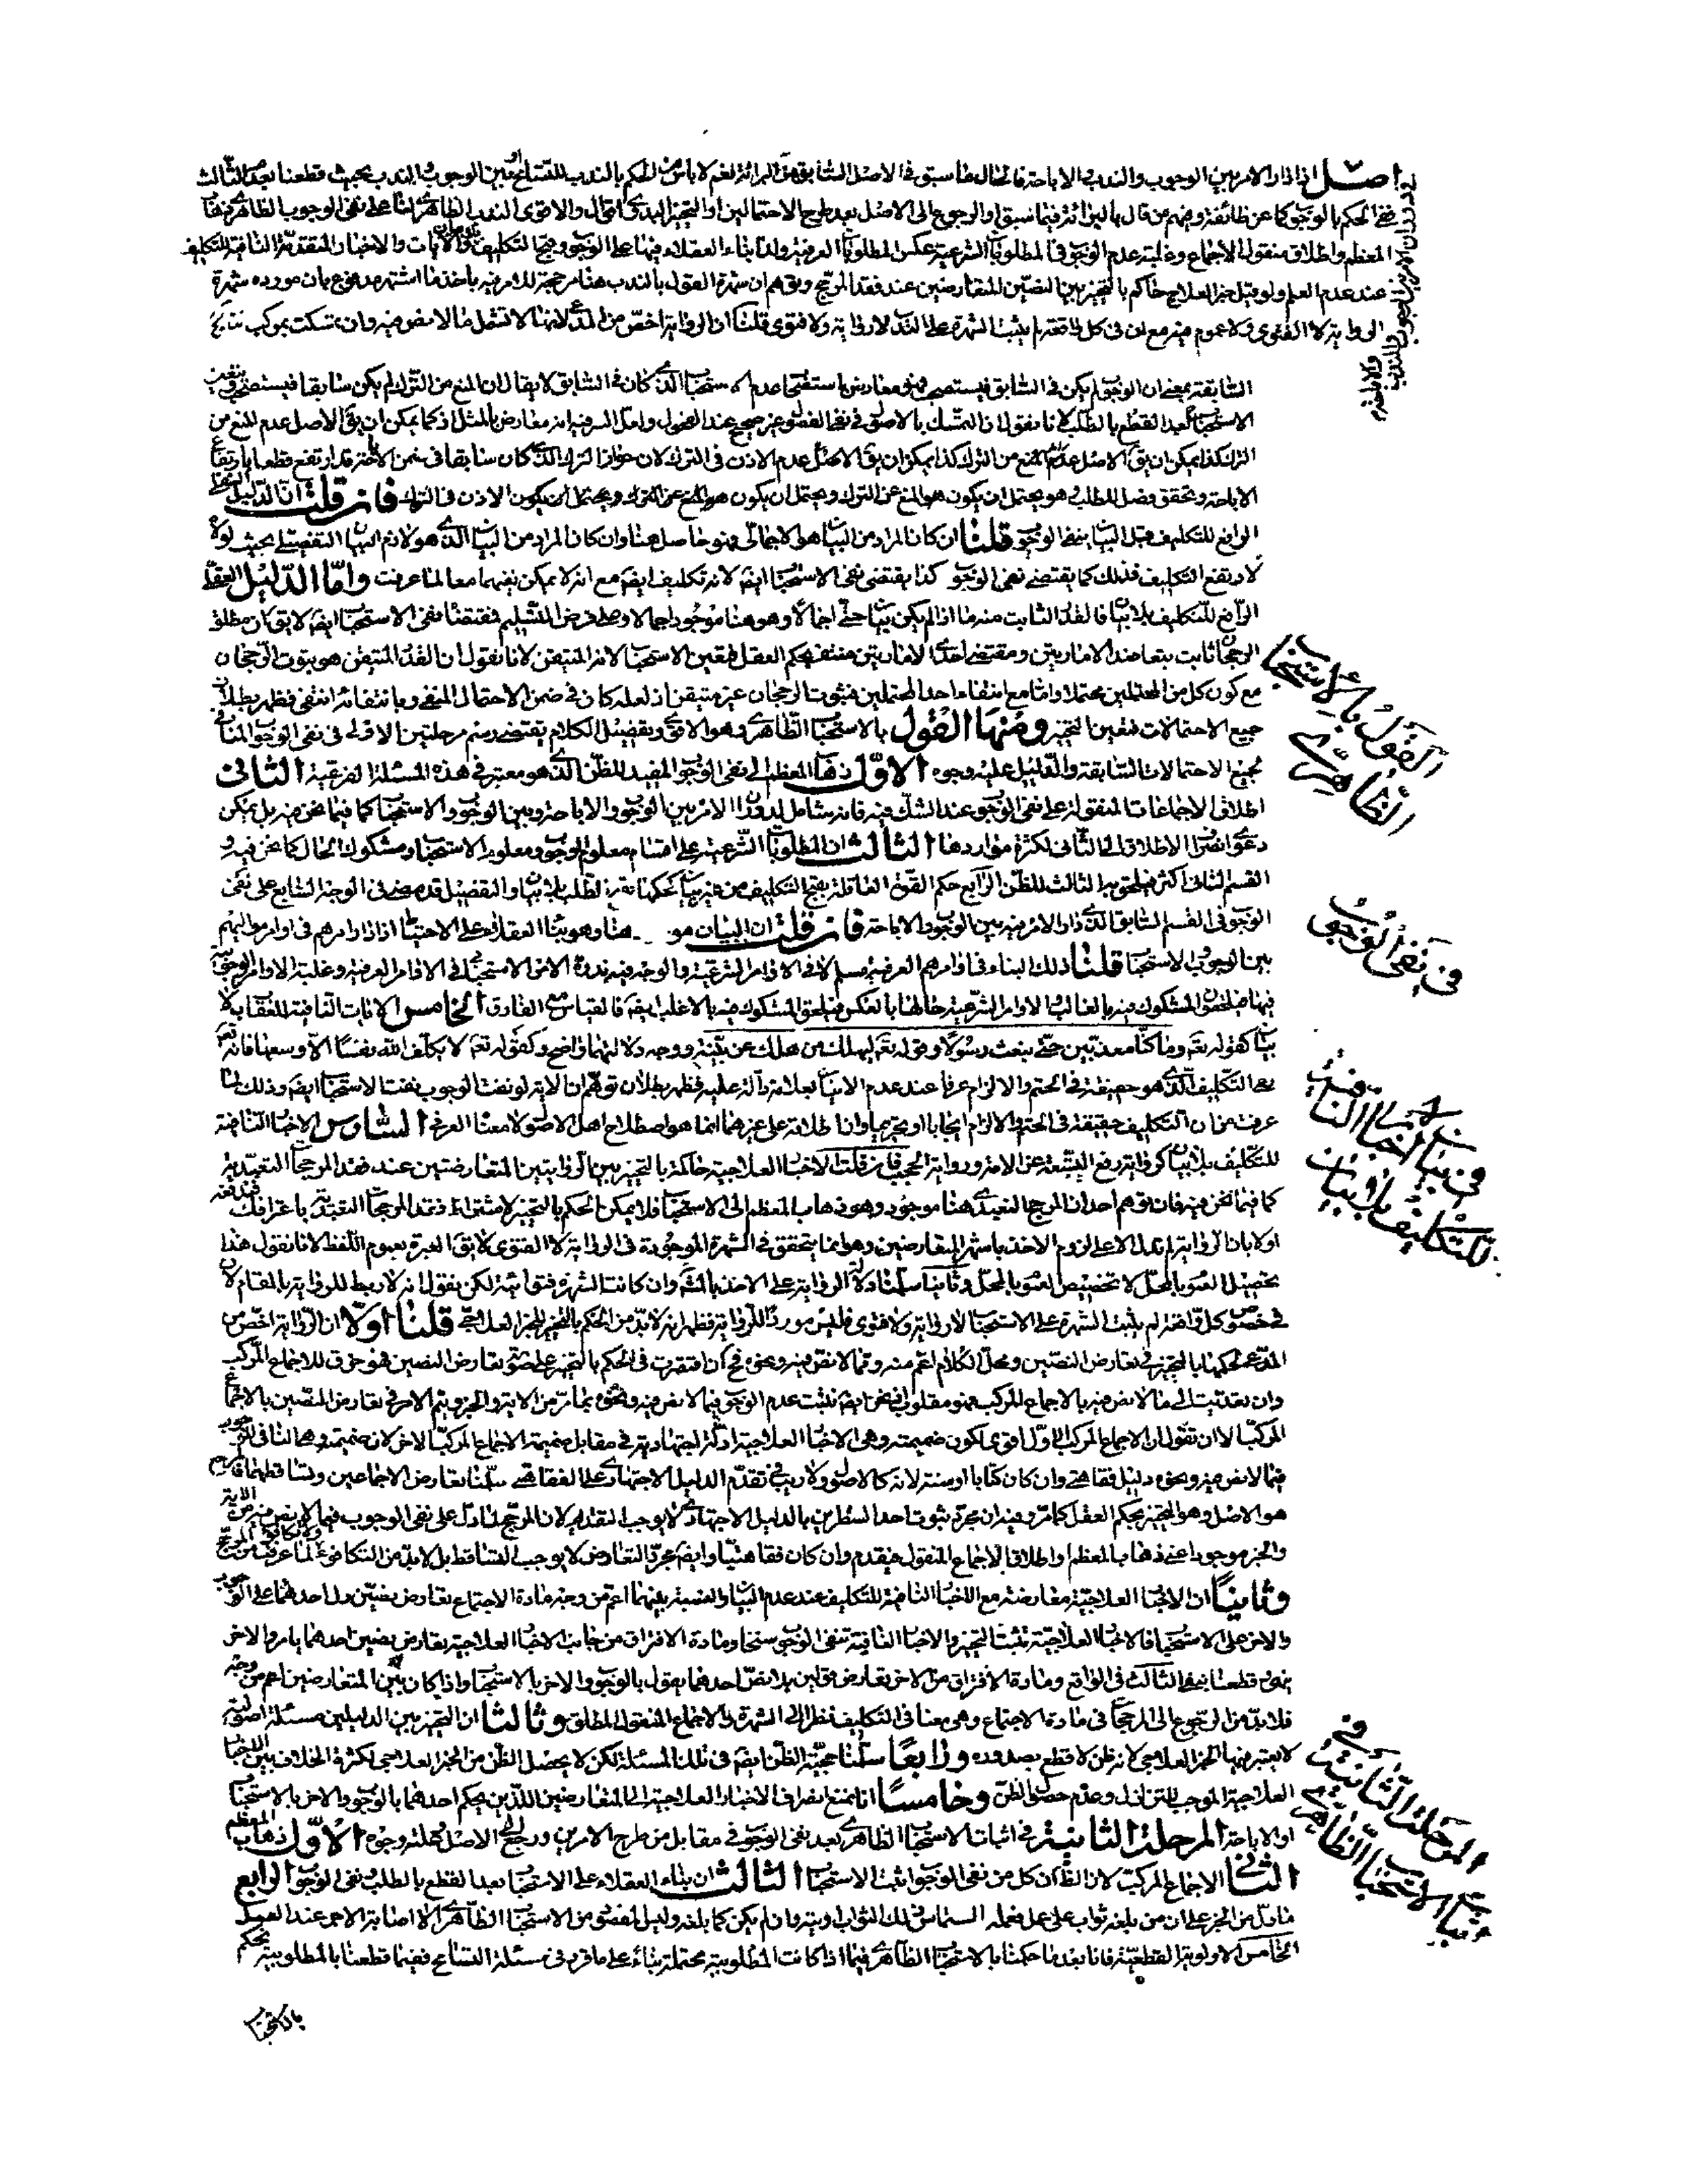 اصل اذا دار الامر بين الوجوب والندب والاباحة فالحال كما سبق فى الاصل السابق من البرائة نعم لا باس من الحكم بالندب للتسامح بين الوجوب والندب بحيث قطعنا بعدم الثالث
ففى الحكم بالوجوب كما عن طائفة ومنهم من قال بالبرائة فيما سبق او الرجوع الى الاصل بعد طرح الاحتمالين او التخيير البدوى اقوال والاقوى الندب الظاهرى لنا على نفى الوجوب الظاهرى ذهاب
المعظم واطلاق منقول الاجماع وغلبة عدم الوجوب فى المطلوبات الشرعية عكس المطلوبات العرفية ولذا بناء العقلاء فيها على الوجوب وقبح التكليف بلا بيان والايات والاخبار المتقدمة النافية للتكليف
عند عدم العلم ولو قيل خبر العلاج حاكم بالتخيير بين النصين المتعارضين عند فقد المرجح وتوهم ان شهرة القول بالندب هنا مرجحة للامر فيه باخذ ما اشتهر مدفوع بان مورده شهرة
الرواية لا الفتوى ولا عموم فيه مع ان فى كل واقعة لم يثبت الشهرة على الندب لا رواية ولا فتوى قلنا ان الرواية اخص من المدعى لانها لا تشمل ما لا نص فيه وان تمسكت بمركب
السابقة بمعنى ان الوجوب لم يكن فى السابق فيستصحب فهو معارض باستصحاب عدم الاستحباب الذى كان فى السابق لا يقال ان المنع من الترك لم يكن سابقا فيستصحب ويتعين
الاستحباب بعد القطع بالطلب لانا نقول ان التمسك بالاصول فى نفى الفصول غير صحيح عند الفحول ولعل السر فيه انه معارض بالمثل اذ كما يمكن ان يق الاصل عدم المنع من
الترك كذا يمكن ان يق الاصل عدم الاذن فى الترك لان جواز الترك الذى كان سابقا فى ضمن الاباحة قد ارتفع قطعا بارتفاع
الاباحة وتحقق فصل للطلب هو يحتمل ان يكون هو المنع عن الترك ويحتمل ان يكون الاذن فى الترك فان قلت ان الدليل
الرافع للتكليف قبل البيان ينفى الوجوب قلنا ان كان المراد من البيان هو الاجمالى فهو حاصل هنا وان كان المراد من البيان الذى هو لازم البيان التفصيلى بحيث لولاه
لارتفع التكليف فذلك كما يقتضى نفى الوجوب كذا يقتضى نفى الاستحباب ايضا لانه تكليف ايضا مع انه لا يمكن نفيهما معا لما عرفت واما الدليل العقلى
الرافع للتكليف بلا بيان فالقدر الثابت منه ما اذا لم يكن بيان حتى اجمالا وهو هنا موجود اجمالا وعلى فرض التسليم فمقتضاه نفى الاستحباب ايضا لا يق ان مطلق
الرجحان ثابت بتعاضد الامارتين ومقتضى احدى الامارتين منتف بحكم العقل فتعين الاستحباب لانه المتيقن لانا نقول ان القدر المتيقن هو ثبوت الرجحان
مع كون كل من المحتملين محتملا واما مع انتفاء احد المحتملين فثبوت الرجحان غير متيقن اذ لعله كان فى ضمن الاحتمال المنفى وبانتفائه انتفى فظهر بطلان
جميع الاحتمالات فتعين التخيير ومنها القول بالاستحباب الظاهرى وهو الاقوى وتفصيل الكلام يقتضى رسم مرحلتين الاولى فى نفى الوجوب المنافى
لجميع الاحتمالات السابقة والدليل عليه وجوه الاول ذهاب المعظم الى نفى الوجوب المفيد للظن الذى هو معتبر فى هذه المسئلة الفرعية الثانى
اطلاق الاجماعات المنقولة على نفى الوجوب عند الشك فيه فانه شامل لدوران الامر بين الوجوب والاباحة وبين الوجوب والاستحباب كما فيما نحن فيه بل يمكن
دعوى انصراف الاطلاق الى الثانى لكثرة مواردها الثالث ان المطلوبات الشرعية على اقسام معلوم الوجوب ومعلوم الاستحباب ومشكوك الحال كما نحن فيه و
القسم الثانى اكثر فيلحق به الثالث للظن الرابع حكم القوة العاقلة بقبح التكليف من غير بيان والتفصيل قد مضى فى الوجه السابع على نفى
الوجوب فى القسم السابق الذى دار الامر فيه بين الوجوب والاباحة فان قلت ان البيان هنا وهو بناء العقلاء على الاحتياط اذا دار امرهم فى اوامر مواليهم
بين الوجوب والاستحباب قلنا ذلك البناء فى اوامرهم العرفية مسلم لا فى الاوامر الشرعية والوجه فيه ندرة الامر الاستحبابى فى الاوامر العرفية وغلبة الاوامر الوجوبية
فيها فيلحق المشكوك فيه بالغالب والاوامر الشرعية حالها بالعكس فيلحق المشكوك فيه بالاغلب ايضا فالقياس مع الفارق الخامس الايات النافية للعقاب بلا
بيان كقوله تعم وما كنا معذبين حتى نبعث رسولا وقوله تعم ليهلك من هلك عن بينة ووجه دلالتهما واضح وكقوله تعم لا يكلف الله نفسا الا وسعها فانه نفى
التكليف الذى هو حقيقة فى الحتم والالزام عرفا عند عدم الاتيان بعلامة دالة عليه فظهر بطلان توهم ان الاية لو نفت الوجوب نفت الاستحباب ايضا وذلك لما
عرفت من ان التكليف حقيقة فى الحتم والالزام ايجابا او تحريما وان اطلاقه على غيرهما انما هو اصطلاح اهل الاصول لا معناه العرفى السادس الاخبار النافية
للتكليف بلا بيان كرواية رفع التسعة عن الامة ورواية الحجب فان قلت الاخبار العلاجية حاكمة بالتخيير بين الروايتين المتعارضتين عند فقد المرجحات التعبدية
كما فيما نحن فيه فان توهم احد ان المرجح التعبدى هنا موجود وهو ذهاب المعظم الى الاستحباب فلا يمكن الحكم بالتخيير لاشتراط فقد المرجحات التعبدية باعترافك فندفعه
اولا بان الرواية لم تدل الا على لزوم الاخذ باشهر المتعارضين وهو انما يتحقق فى الشهرة الموجودة فى الرواية لا الفتوى لا يق العبرة بعموم اللفظ لانا نقول هذا
تخصيص العموم بالمحل لا تخصيص العموم بالمحل وثانيا سلمنا دلالة الرواية على الاخذ بالشهرة وان كانت الشهرة فتوائية لكن نقول انه لا ربط للرواية بالمقام لان
فى خصوص كل واقعة لم يثبت الشهرة على الاستحباب لا رواية ولا فتوى فليس موردا للرواية فظهر انه لا بد من الحكم بالتخيير للخبر العلاجى قلنا اولا ان الرواية اخص من
المدعى لحكمها بالتخيير فى تعارض النصين ومحل الكلام اعم منه ومما لا نص فيه ونحوه فح ان اقتصرت فى الحكم بالتخيير على صورة تعارض النصين فهو خرق للاجماع المركب
وان تعديت الى ما لا نص فيه بالاجماع المركب فهو مقلوب فنحن ايضا نثبت عدم الوجوب فيما لا نص فيه ونحوه بما مر من الاية والخبر ويتم الامر فى تعارض النصين بالاجماع
المركب الا ان تقول ان الاجماع المركب الاول اقوى لكون ضميمته وهى الاخبار العلاجية ادلة اجتهادية فى مقابل ضميمة الاجماع المركب الاخر لان ضميمته وهى النافى للوجوب
فيما لا نص فيه ونحوه دليل فقاهتى وان كان كتابا او سنة لانه كالاصول ولا ريب فى تقدم الدليل الاجتهادى على الفقاهتى سلمنا تعارض الاجماعين وتساقطهما
هو الاصل وهو التخيير بحكم العقل كما مر وفيه ان مجرد ثبوت احد الشطرين بالدليل الاجتهادى لا يوجب التقديم لان المرجح لما دل على نفى الوجوب فيما لا نص فيه من الاية
والخبر موجود اعنى ذهاب المعظم واطلاق الاجماع المنقول فيقدم وان كان فقاهتيا وايضا مجرد التعارض لا يوجب التساقط بل لا بد من التكافوء ولا تكافوء لما عرفت من المرجح
وثانيا ان الاخبار العلاجية معارضة مع الاخبار النافية للتكليف عند عدم البيان والنسبة بينهما اعم من وجه مادة الاجتماع تعارض نصين دل احدهما على الوجوب
والاخر على الاستحباب فالاخبار العلاجية تثبت التخيير والاخبار النافية تنفى الوجوب سنخا ومادة الافتراق من جانب الاخبار العلاجية تعارض نصين احدهما يامر والاخر
ينهى قطعنا بنفى الثالث فى الواقع ومادة الافتراق من الاخر تعارض قولين بلا نص احدهما يقول بالوجوب والاخر بالاستحباب واذا كان بين المتعارضين اعم من وجه
فلا بد من الرجوع الى المرجحات فى مادة الاجتماع وهى معنا فى التكليف نظرا الى الشهرة والاجماع المنقول المطلق وثالثا ان التخيير بين الدليلين مسئلة اصولية
لا يعتبر فيها الخبر العلاجى لانه ظن لا قطع بصدوره ورابعا سلمنا حجية الظن ايضا فى تلك المسئلة لكن لا يحصل الظن من الخبر العلاجى لكثرة الخلاف بين الاخبار
العلاجية الموجب للتزلزل وعدم حصول الظن وخامسا انا نمنع انصراف الاخبار العلاجية الى المتعارضين اللذين يحكم احدهما بالوجوب والاخر بالاستحباب
او الاباحة المرحلة الثانية فى اثبات الاستحباب الظاهرى بعد نفى الوجوب فى مقابل من طرح الامرين ورجع الى الاصل جملة وجوه الاول ذهاب المعظم
الثانى الاجماع المركب لان الظ ان كل من نفى الوجوب اثبت الاستحباب الثالث ان بناء العقلاء على الاستحباب بعد القطع بالطلب ونفى الوجوب الرابع
ما دل من الخبر على ان من بلغه ثواب على عمل فعمله التماس ذلك الثواب اوتيه وان لم يكن كما بلغه وليس المقصود من الاستحباب الظاهرى الا اصابة الاجر عند العمل
الخامس الاولوية القطعية فانا بعد ما حكمنا بالاستحباب الظاهرى فيما اذا كانت المطلوبية محتملة بناء على ما قرر فى مسئلة التسامح ففيما قطعنا بالمطلوبية يحكم
بالاستحباب
فى دوران الامر بين الوجوب والندب والاباحة
القول بالاستحباب الظاهرى
فى نفى الوجوب
فى بيان الاخبار النافية للتكليف بلا بيان
فى المرحلة الثانية
اثبات الاستحباب الظاهرى